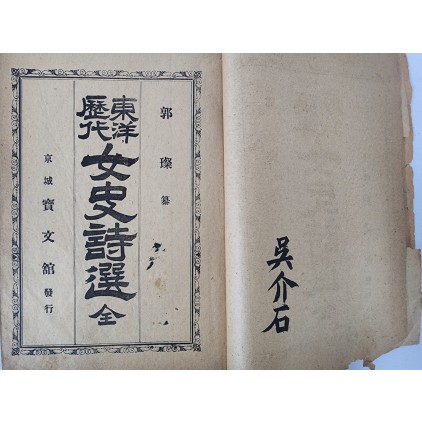 吳介石
郭璨 纂
東洋
歷代
女史詩選 全
京城 寶文館 發行